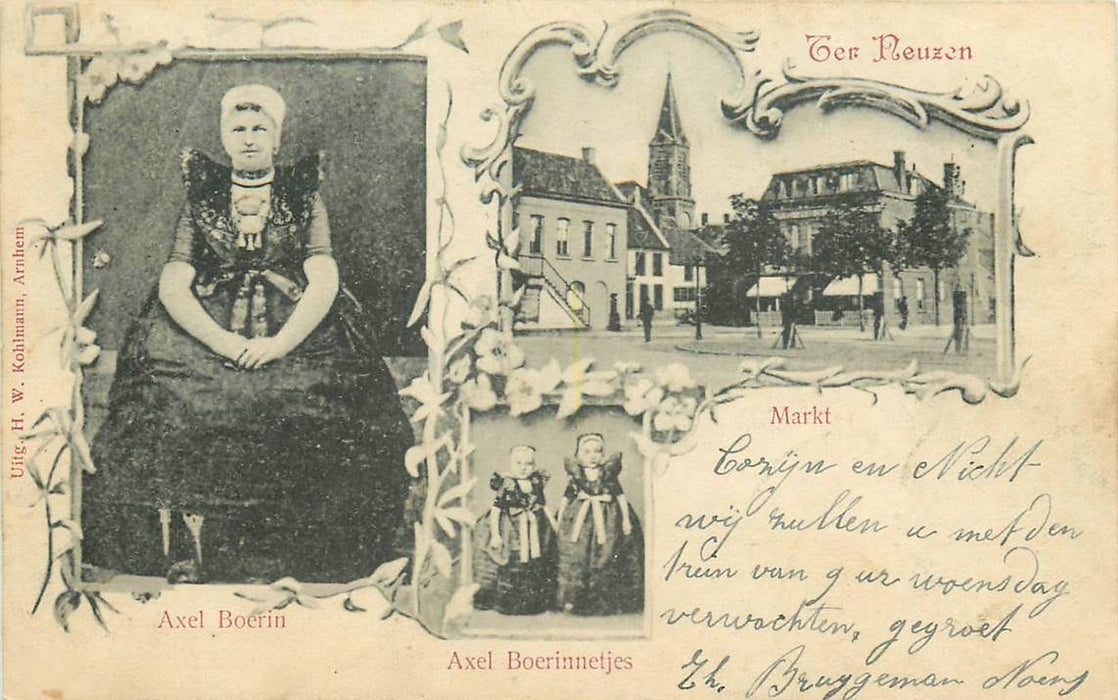 Ter Neuzen
Uitg. H. W. Kohlmann, Arnhem
Markt
Cozijn en Nicht
wij zullen u met den
trein van 9 ur woensdag
verwachten, gegroet
Th. Bruggeman Noens
Axel Boerin
Axel Boerinnetjes